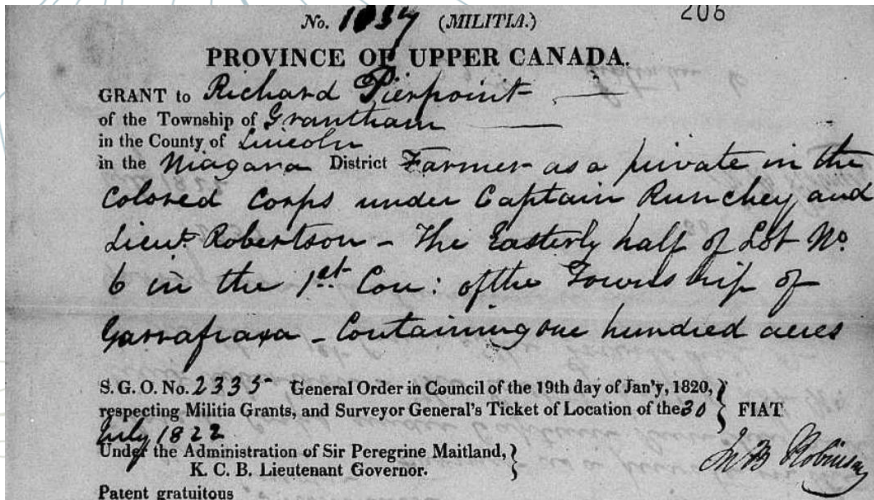 No. 1037 (MILITIA.)
206
PROVINCE OF UPPER CANADA.
GRANT to Richard Pierpoint
of the Township of Grantham
in the County of Lincoln
in the Niagara District Farmer as a private in the
Colored Corps under Captain Runchey and
Lieut Robertson - The Easterly half of Lot No.
6 in the 1st Con: of the Township of
Garrafraxa - Containing one hundred acres
S. G. O. No. 2335 General Order in Council of the 19th day of Jan'y, 1820,
respecting Militia Grants, and Surveyor General's Ticket of Location of the 30 } FIAT
July 1822
Under the Administration of Sir Peregrine Maitland, }
K. C. B. Lieutenant Governor.
Jn B Robinson
Patent gratuitous